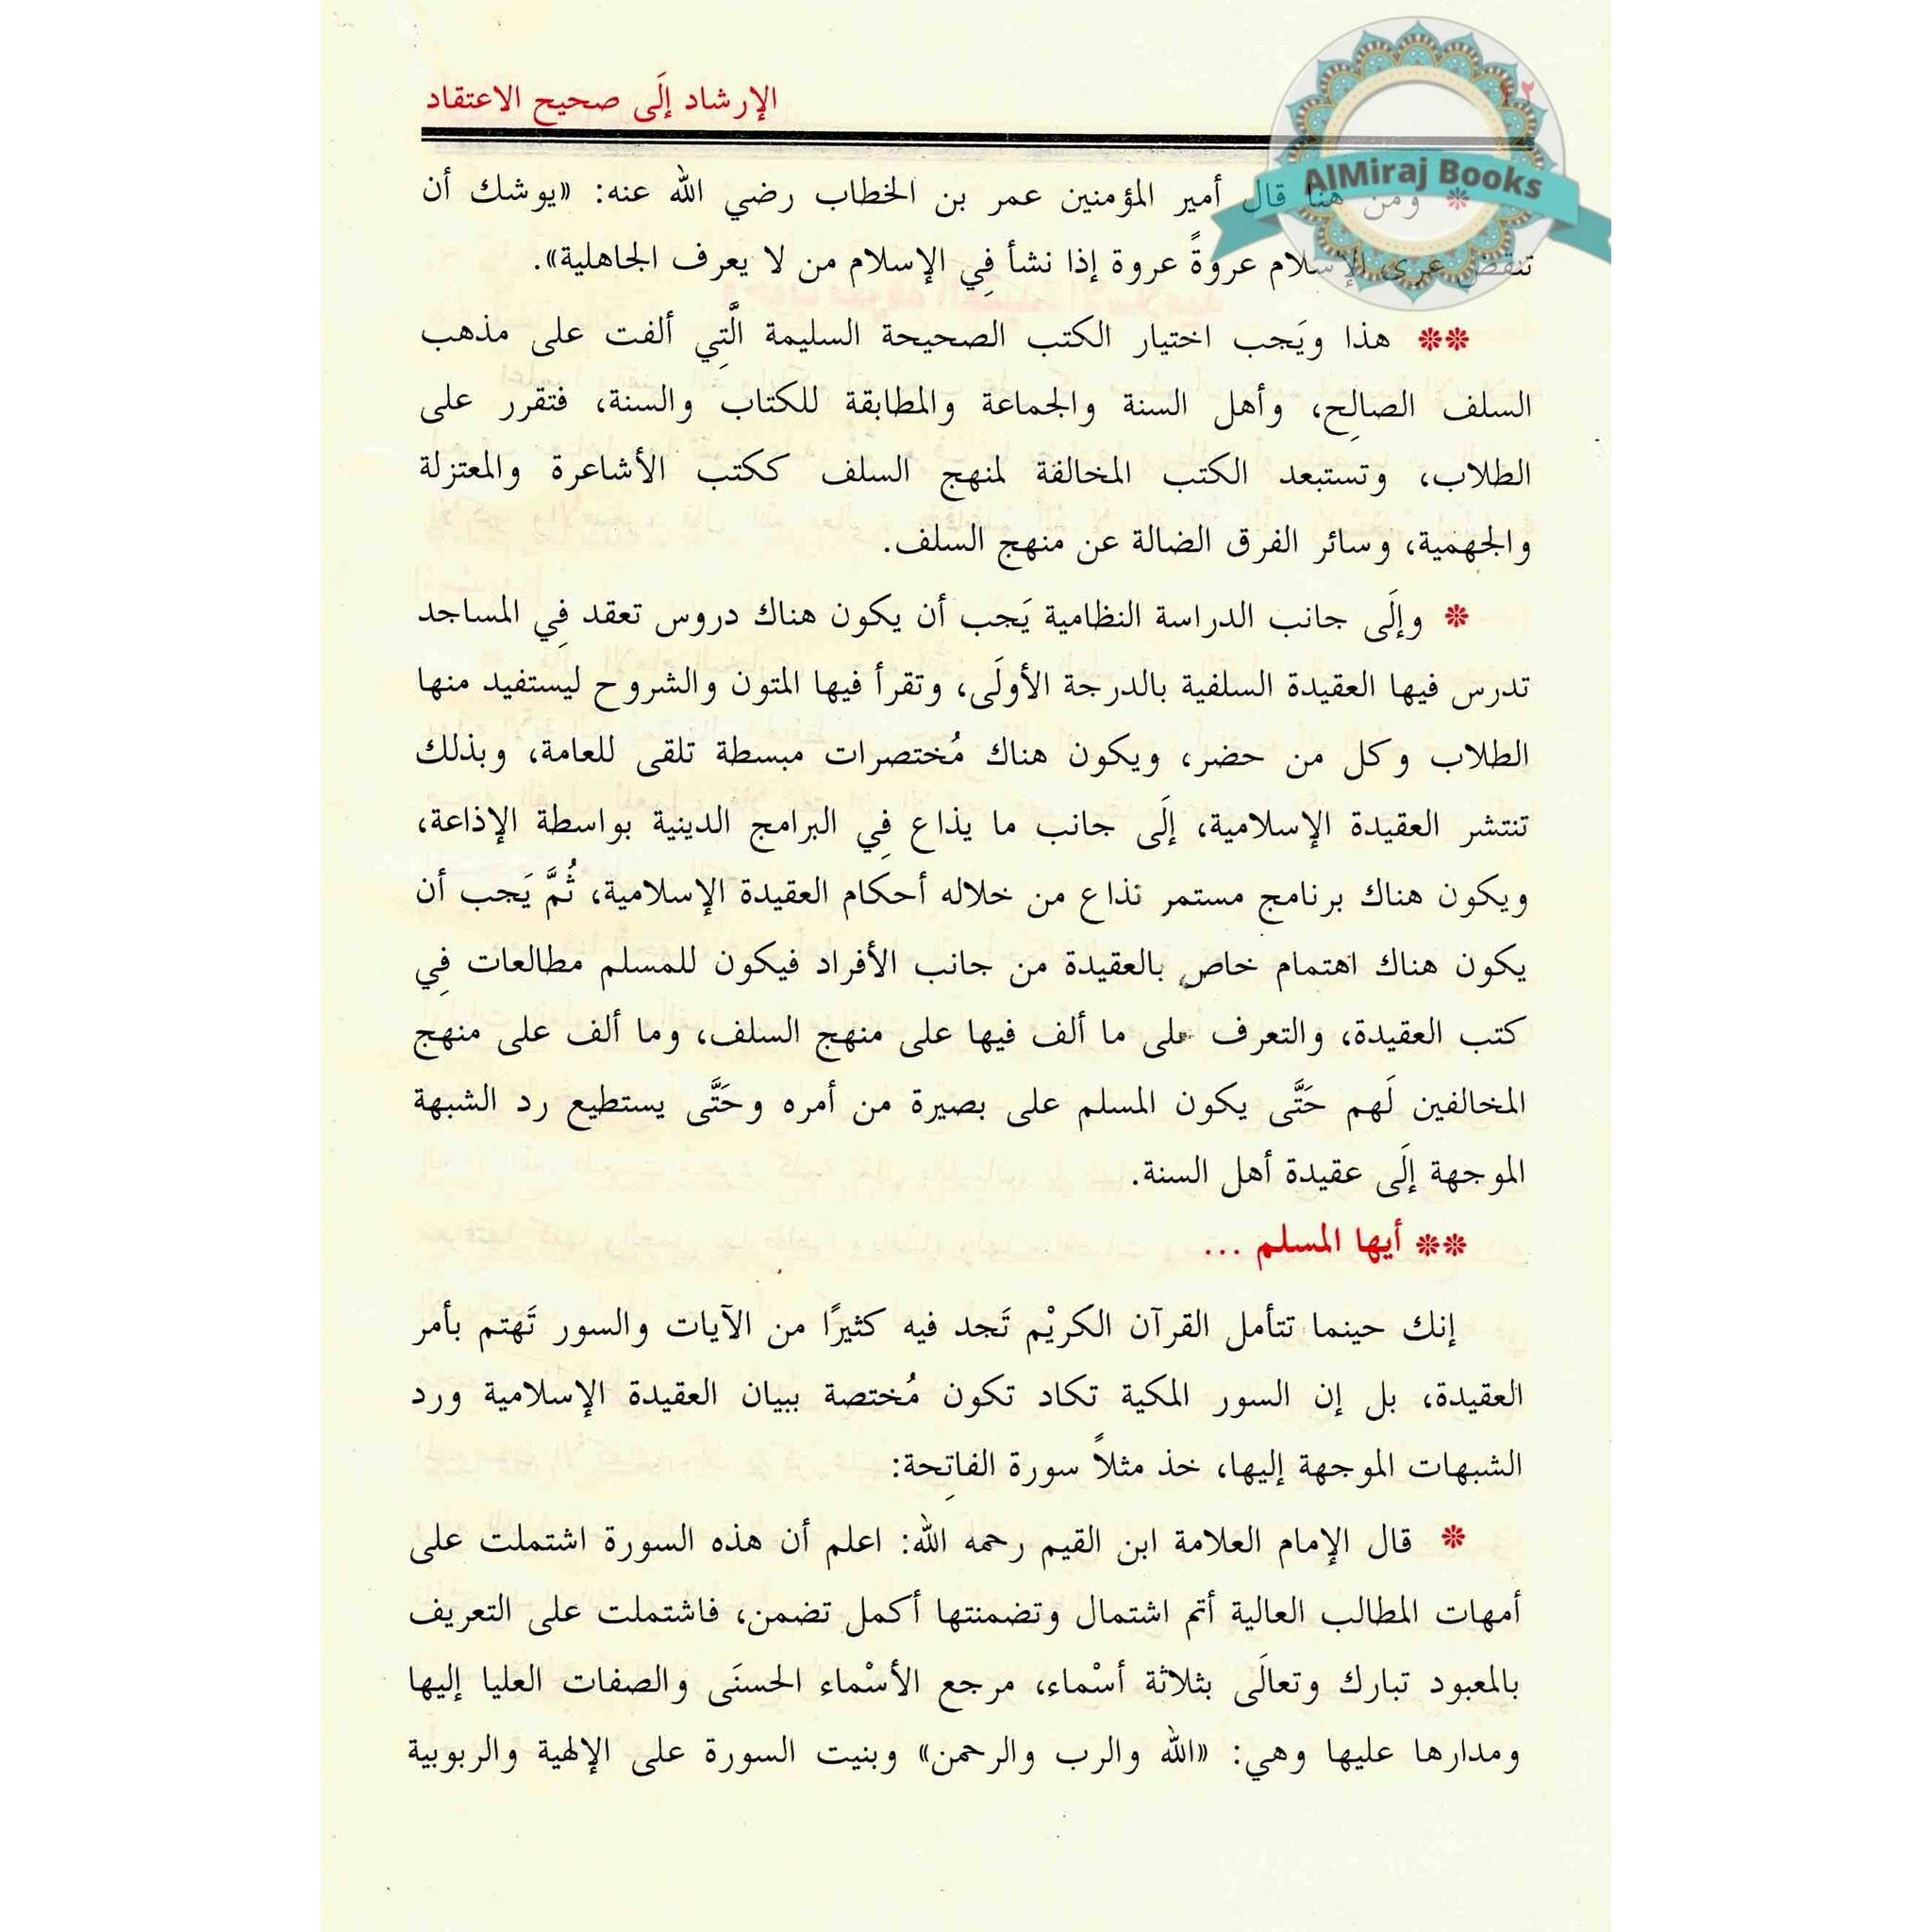 الإرشاد إلَى صحيح الاعتقاد
AlMiraj Books
❊ ومن هنا قال أمير المؤمنين عمر بن الخطاب رضي الله عنه: «يوشك أن
تنقض عرى الإسلام عروةً عروة إذا نشأ فِي الإسلام من لا يعرف الجاهلية».
❊❊ هذا ويَجب اختيار الكتب الصحيحة السليمة الَّتِي ألفت على مذهب
السلف الصالِح، وأهل السنة والجماعة والمطابقة للكتاب والسنة، فتقرر على
الطلاب، وتستبعد الكتب المخالفة لمنهج السلف ككتب الأشاعرة والمعتزلة
والجهمية، وسائر الفرق الضالة عن منهج السلف.
❊ وإلَى جانب الدراسة النظامية يَجب أن يكون هناك دروس تعقد فِي المساجد
تدرس فيها العقيدة السلفية بالدرجة الأولَى، وتقرأ فيها المتون والشروح ليستفيد منها
الطلاب وكل من حضر، ويكون هناك مُختصرات مبسطة تلقى للعامة، وبذلك
تنتشر العقيدة الإسلامية، إلَى جانب ما يذاع فِي البرامج الدينية بواسطة الإذاعة،
ويكون هناك برنامج مستمر تذاع من خلاله أحكام العقيدة الإسلامية، ثُمَّ يَجب أن
يكون هناك اهتمام خاص بالعقيدة من جانب الأفراد فيكون للمسلم مطالعات فِي
كتب العقيدة، والتعرف على ما ألف فيها على منهج السلف، وما ألف على منهج
المخالفين لَهم حَتَّى يكون المسلم على بصيرة من أمره وحَتَّى يستطيع رد الشبهة
الموجهة إلَى عقيدة أهل السنة.
❊❊ أيها المسلم ...
إنك حينما تتأمل القرآن الكريْم تَجد فيه كثيرًا من الآيات والسور تَهتم بأمر
العقيدة، بل إن السور المكية تكاد تكون مُختصة ببيان العقيدة الإسلامية ورد
الشبهات الموجهة إليها، خذ مثلاً سورة الفاتِحة:
❊ قال الإمام العلامة ابن القيم رحمه الله: اعلم أن هذه السورة اشتملت على
أمهات المطالب العالية أتم اشتمال وتضمنتها أكمل تضمن، فاشتملت على التعريف
بالمعبود تبارك وتعالَى بثلاثة أسْماء، مرجع الأسْماء الحسنَى والصفات العليا إليها
ومدارها عليها وهي: «الله والرب والرحمن» وبنيت السورة على الإلهية والربوبية